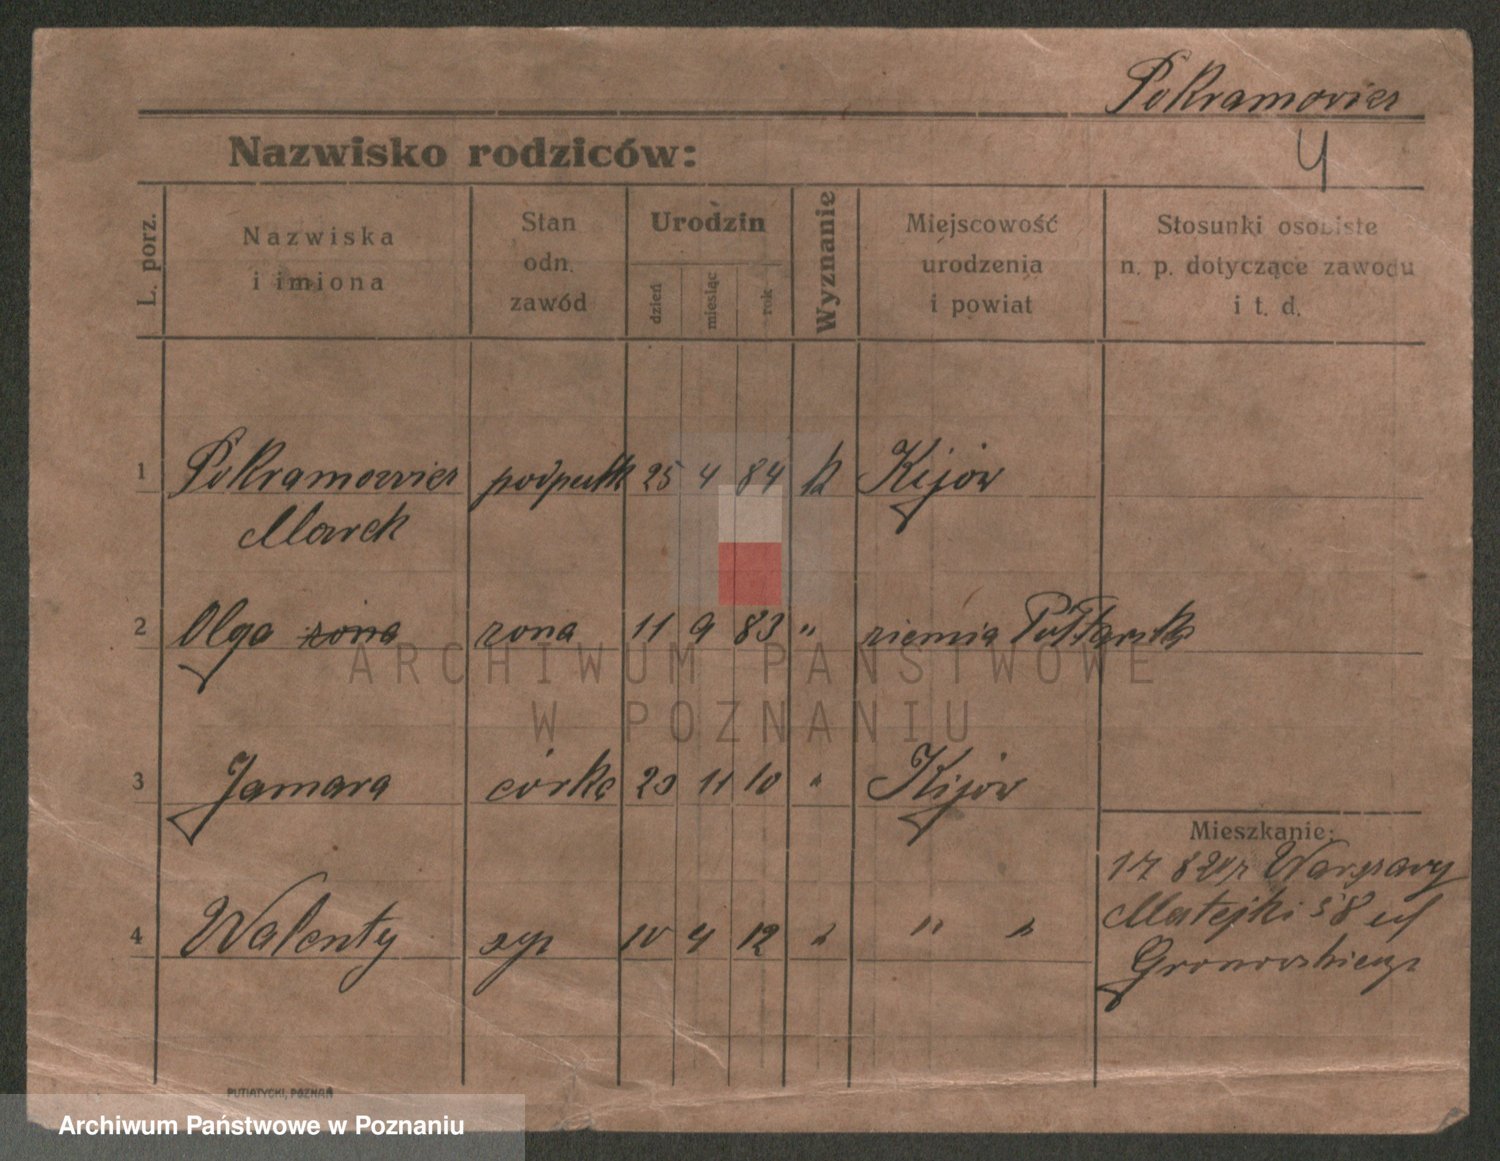 Pokramovicz
4
Nazwisko rodziców:
L. porz.
Nazwiska
i imiona
Stan
odn.
zawód
Urodzin
dzień
miesiąc
rok
Wyznanie
Miejscowość
urodzenia
i powiat
Stosunki osobiste
n. p. dotyczące zawodu
i t. d.
1 Pokramowicz podpułk 25 4 84 Kijów
Marek
2 Olga żona żona 11 9 83 " ziemia Połtarska
3 Tamara córka 23 11 10 " Kijów
4 Walenty syn 10 4 12 " " "
Mieszkanie:
Warszawy
Matejki 58 u
Gronowskiego
PUTIATYCKI, POZNAŃ
ARCHIWUM PAŃSTWOWE
W POZNANIU
Archiwum Państwowe w Poznaniu